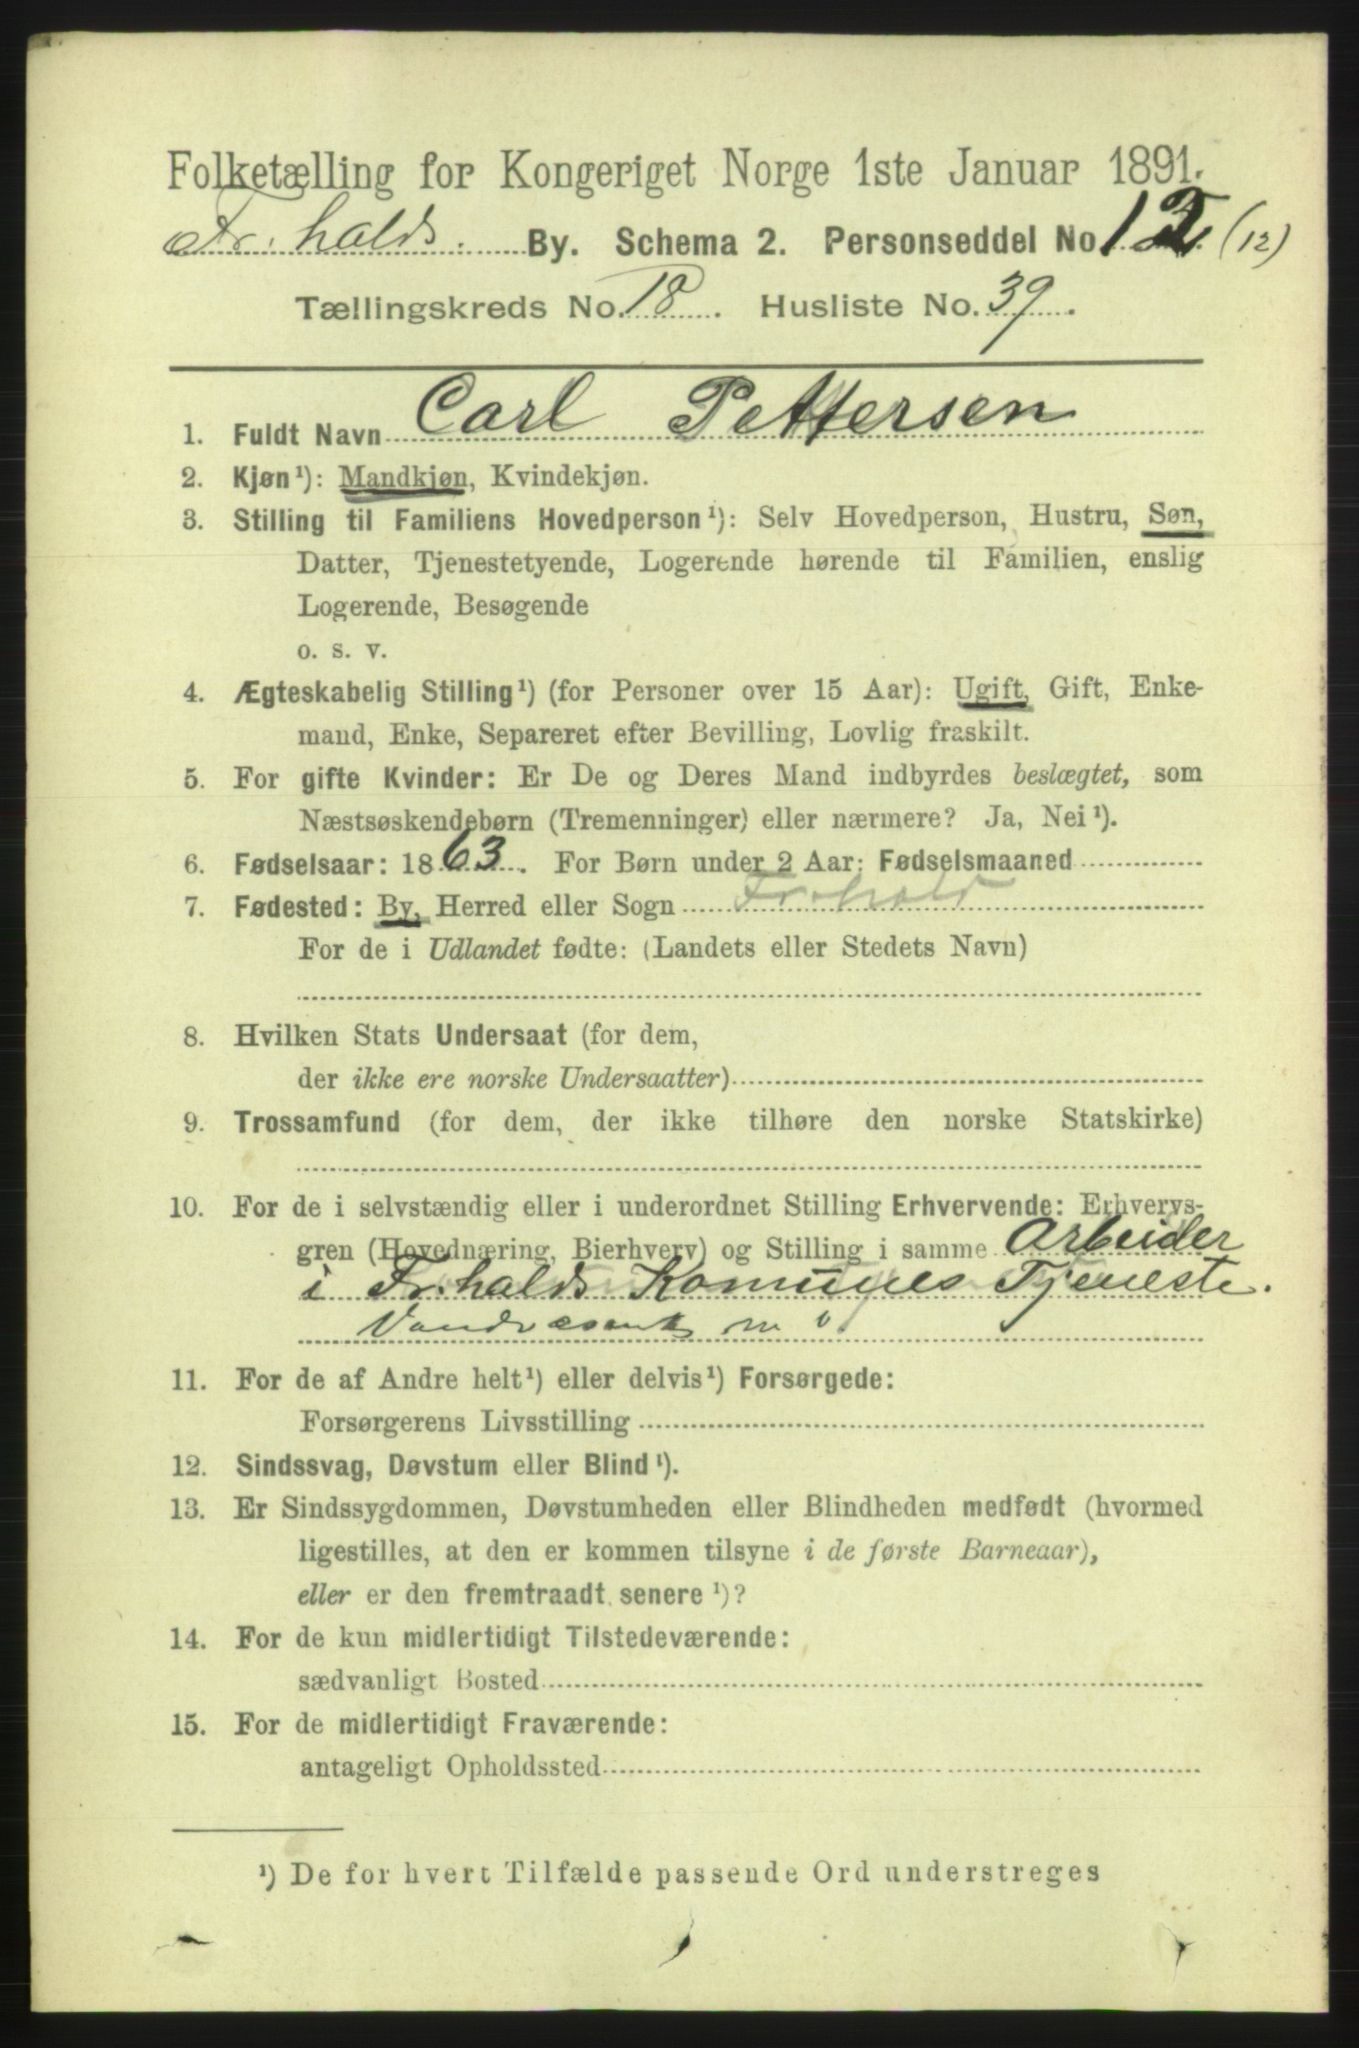 Folketælling for Kongeriget Norge 1ste Januar 1891.
Fr.halds. By. Schema 2. Personseddel No. 12 (12)
Tællingskreds No. 18. Husliste No. 39.
1. Fuldt Navn Carl Pettersen
2. Kjøn¹): Mandkjøn, Kvindekjøn.
3. Stilling til Familiens Hovedperson¹): Selv Hovedperson, Hustru, Søn,
Datter, Tjenestetyende, Logerende hørende til Familien, enslig
Logerende, Besøgende
o. s. v.
4. Ægteskabelig Stilling¹) (for Personer over 15 Aar): Ugift, Gift, Enke-
mand, Enke, Separeret efter Bevilling, Lovlig fraskilt.
5. For gifte Kvinder: Er De og Deres Mand indbyrdes beslægtet, som
Næstsøskendebørn (Tremenninger) eller nærmere? Ja, Nei¹).
6. Fødselsaar: 1863. For Børn under 2 Aar: Fødselsmaaned
7. Fødested: By, Herred eller Sogn Fr.hald
For de i Udlandet fødte: (Landets eller Stedets Navn)
8. Hvilken Stats Undersaat (for dem,
der ikke ere norske Undersaatter)
9. Trossamfund (for dem, der ikke tilhøre den norske Statskirke)
10. For de i selvstændig eller i underordnet Stilling Erhvervende: Erhvervs-
gren (Hovednæring, Bierhverv) og Stilling i samme Arbeider
i Fr.halds Komunes Tjeneste.
Vandvæsenet m
11. For de af Andre helt¹) eller delvis¹) Forsørgede:
Forsørgerens Livsstilling
12. Sindssvag, Døvstum eller Blind¹).
13. Er Sindssygdommen, Døvstumheden eller Blindheden medfødt (hvormed
ligestilles, at den er kommen tilsyne i de første Barneaar),
eller er den fremtraadt senere¹)?
14. For de kun midlertidigt Tilstedeværende:
sædvanligt Bosted
15. For de midlertidigt Fraværende:
antageligt Opholdssted
¹) De for hvert Tilfælde passende Ord understreges